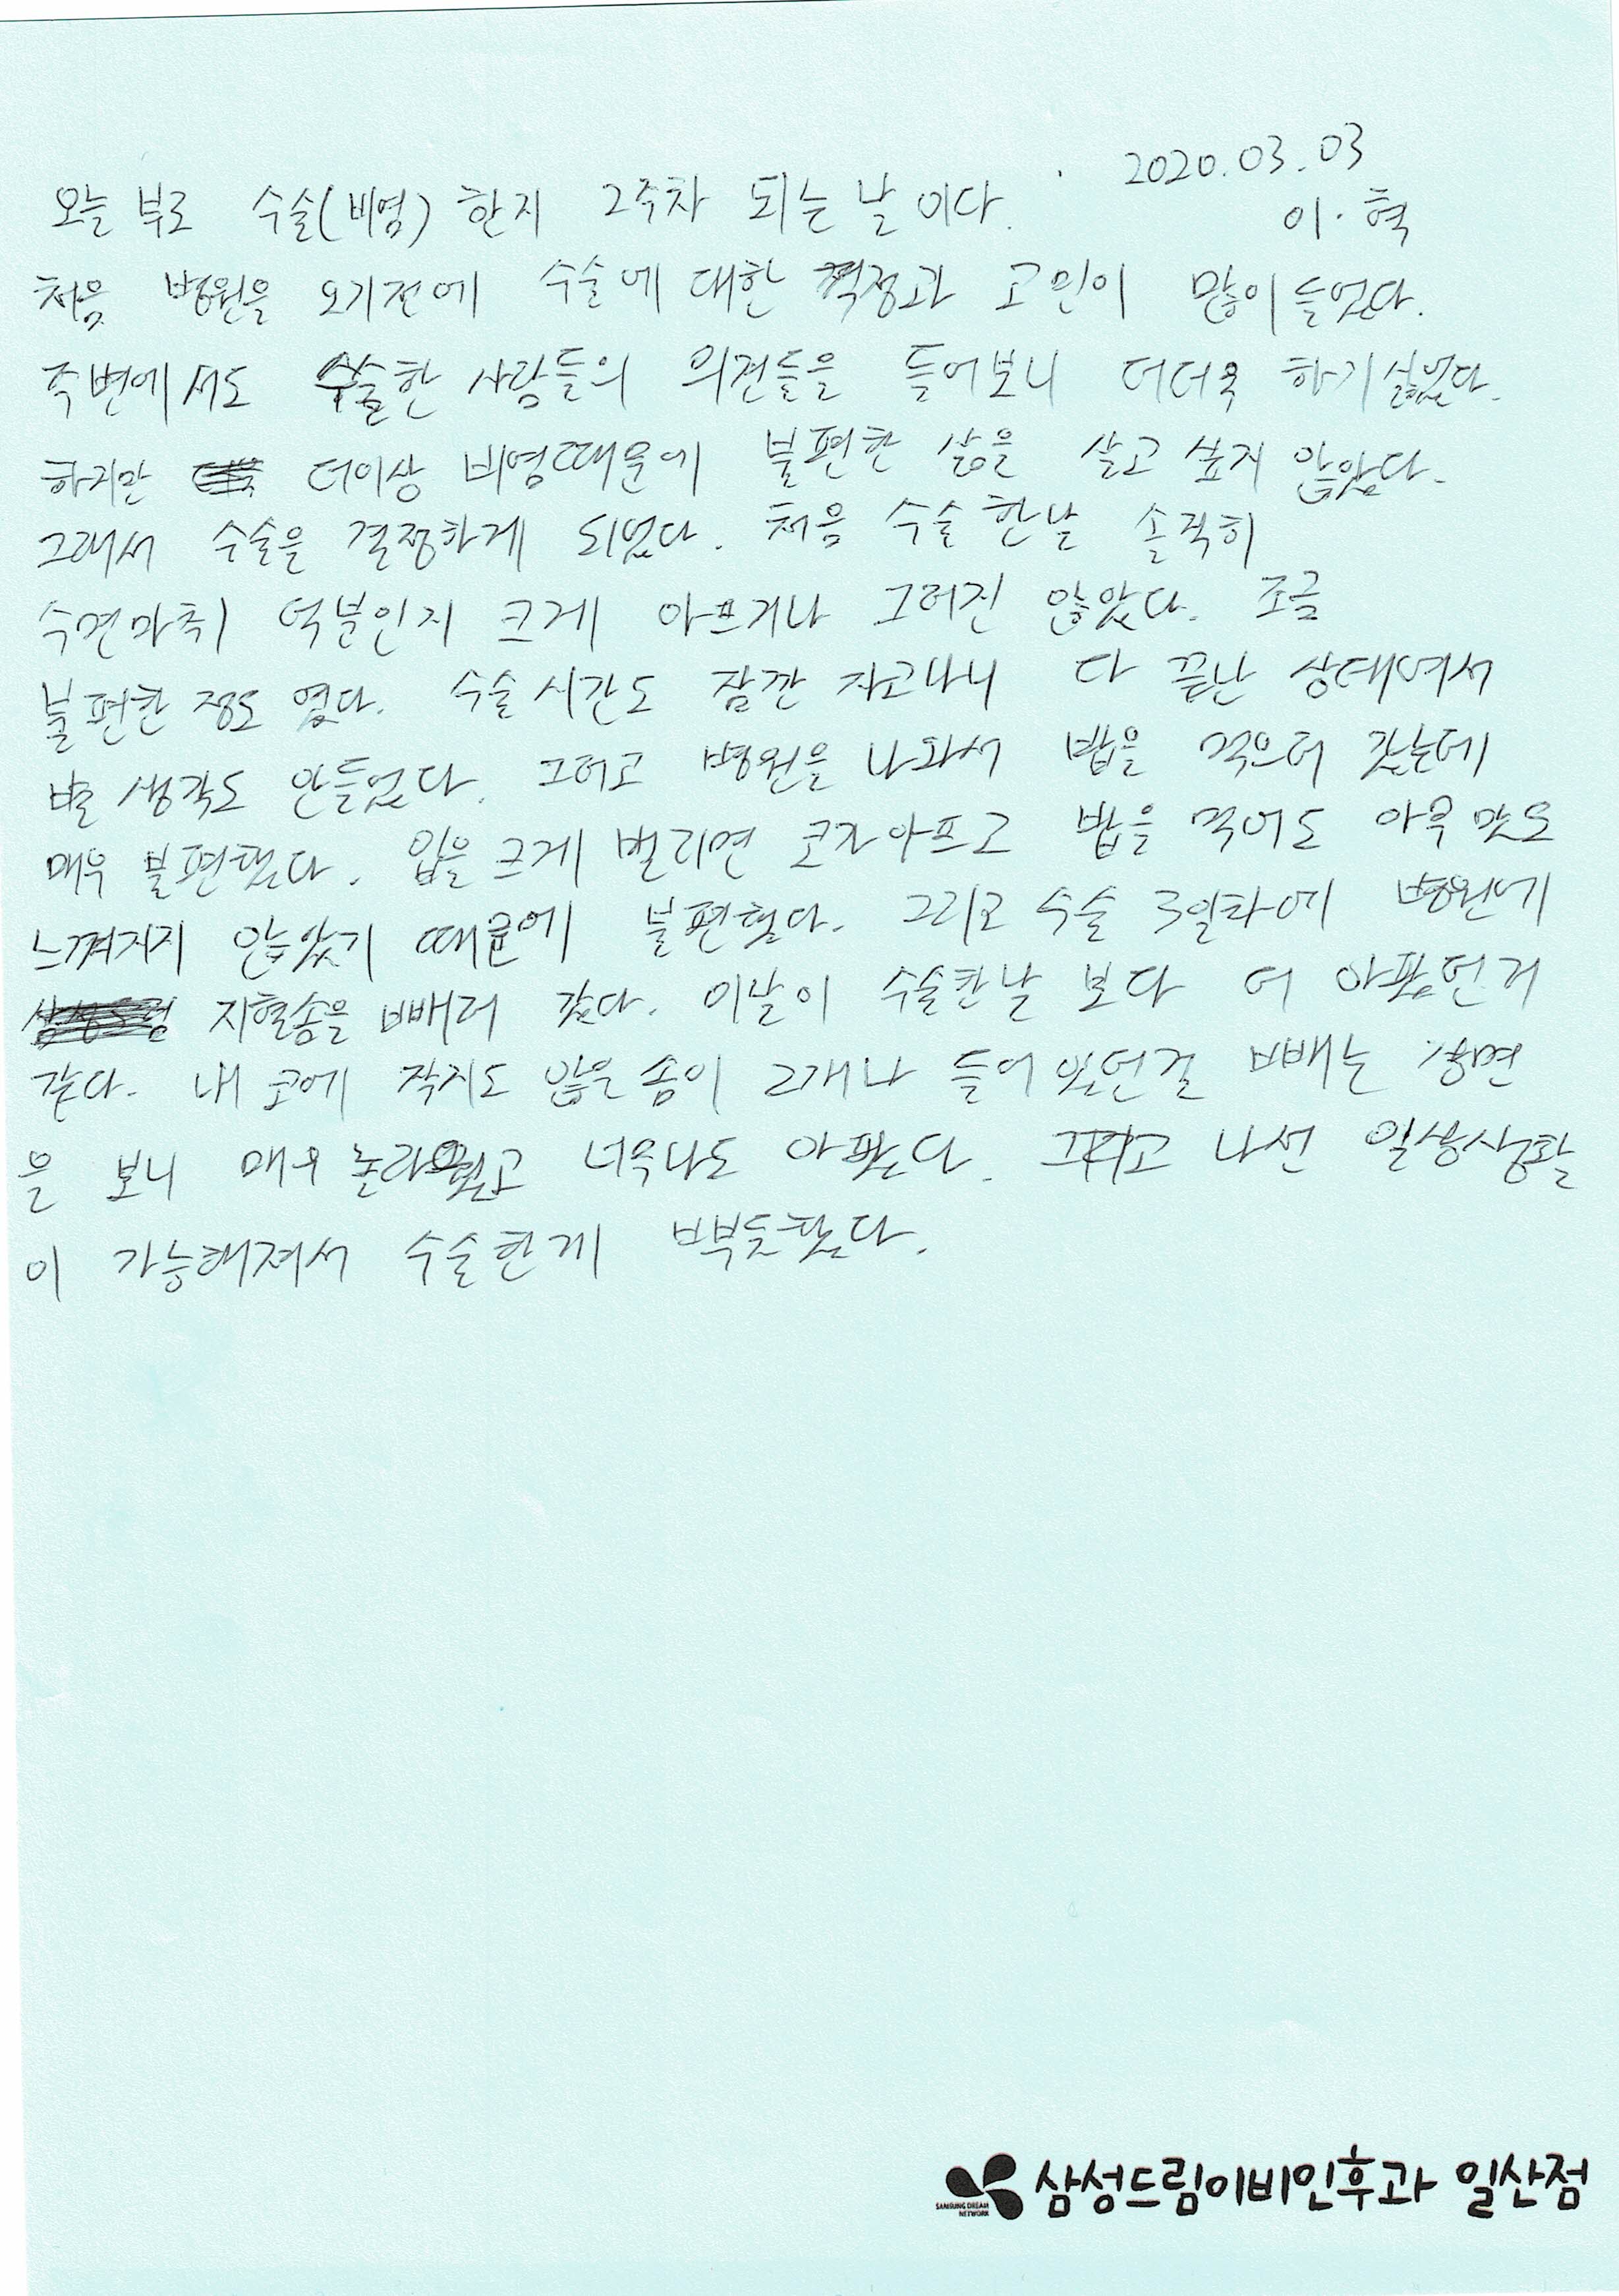 2020.03.03
오늘 부로 수술(비염) 한지 2주차 되는 날 이다.
이·혁
처음 병원을 오기전에 수술에 대한 걱정과 고민이 많이 들었다.
주변에서도 수술한 사람들의 의견들을 들어보니 더더욱 하기싫었다.
하지만 더이상 비염때문에 불편한 삶을 살고 싶지 않았다.
그래서 수술을 결정하게 되었다. 처음 수술한날 솔직히
수면마취 덕분인지 크게 아프거나 그러진 않았다. 조금
불편한 정도 였다. 수술시간도 잠깐 자고나니 다 끝난 상태여서
별 생각도 안들었다. 그러고 병원을 나와서 밥을 먹으러 갔는데
매우 불편했다. 입을 크게 벌리면 코가아프고 밥을 먹어도 아무 맛도
느껴지지 않았기 때문에 불편했다. 그리고 수술 3일차에 병원에
지혈솜을 빼러 갔다. 이날이 수술한날 보다 더 아팠던거
같다. 내 코에 작지도 않은 솜이 2개나 들어있던걸 빼는 장면
을 보니 매우 놀라웠고 너무나도 아팠다. 그리고 나선 일상생활
이 가능해져서 수술한게 뿌듯했다.
SAMSUNG DREAM
NETWORK
삼성드림이비인후과 일산점